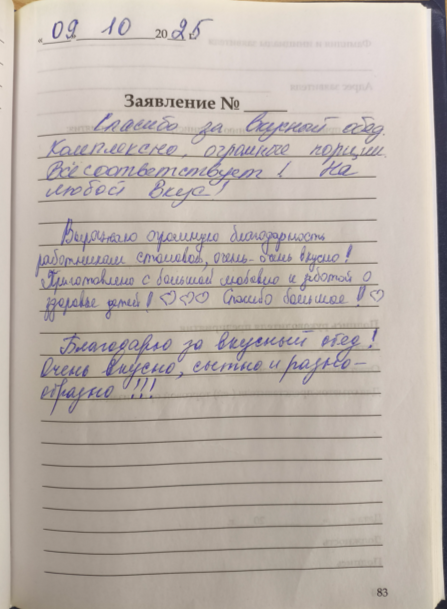 « 09 10 2025
Заявление №
Спасибо за вкусный обед.
Комплексно, огромные порции.
Всё соответствует! На
любой вкус!
Выражаю огромную благодарность
работникам столовой, очень-очень вкусно!
Приготовлено с большой любовью и заботой о
здоровье детей! ♡♡♡ Спасибо большое!! ♡
Благодарю за вкусный обед!
Очень вкусно, сытно и разно-
образно!!!
83